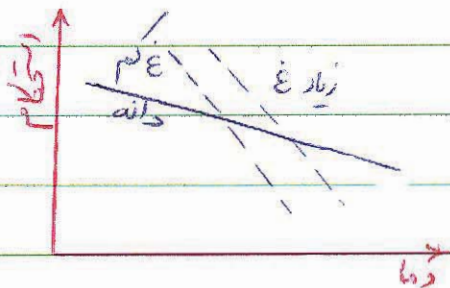 استحکام
ε̇ کم
زیاد ε̇
دانه
دما